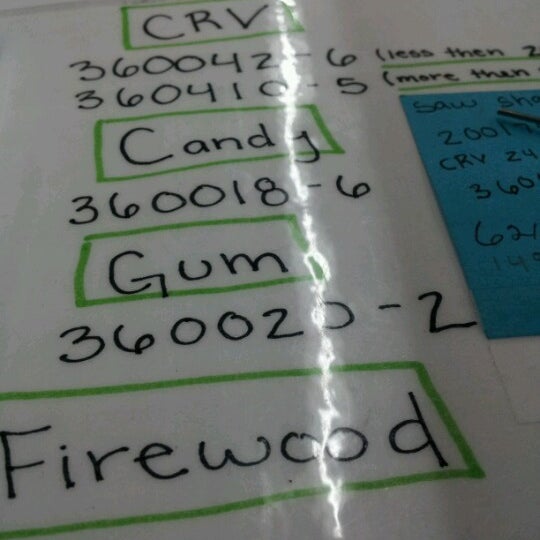 CRV
360042-6 (less then 2
360410-5 (more then
Candy
360018-6
Gum
360020-2
Firewood
saw
2001
CRV 24
360
62